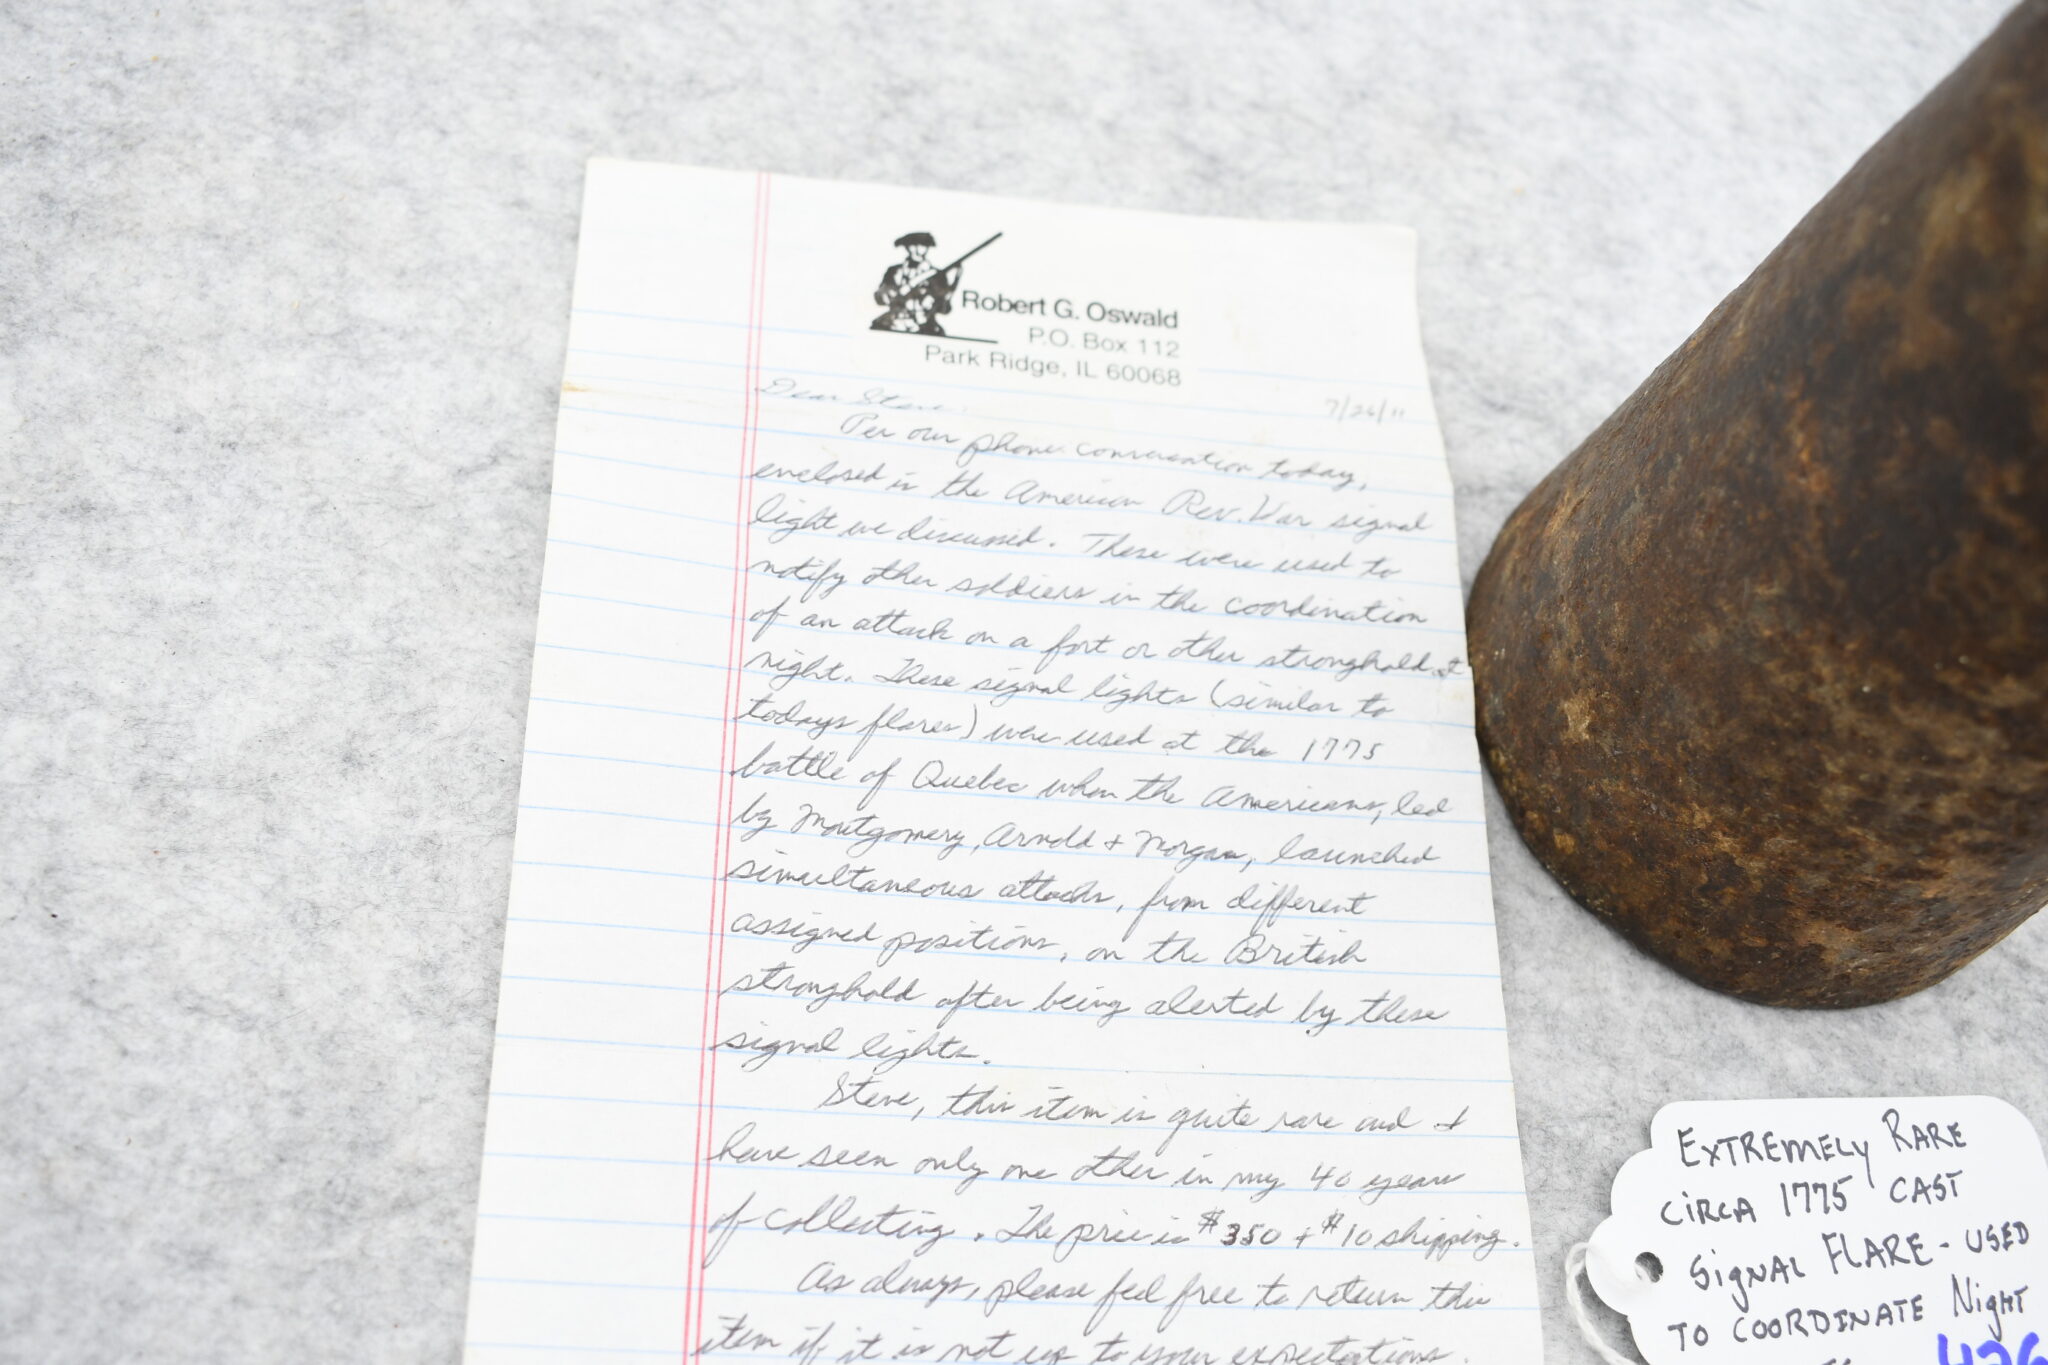 Robert G. Oswald
P.O. Box 112
Park Ridge, IL 60068
Dear Steve, 7/26/11
Per our phone conversation today,
enclosed is the American Rev. War signal
light we discussed. These were used to
notify other soldiers in the coordination
of an attack on a fort or other stronghold at
night. These signal lights (similar to
todays flares) were used at the 1775
battle of Quebec when the Americans, led
by Montgomery, Arnold + Morgan, launched
simultaneous attacks, from different
assigned positions, on the British
stronghold after being alerted by these
signal lights.
Steve, this item is quite rare and I
have seen only one other in my 40 years
of collecting. The price is $350 + $10 shipping.
As always, please feel free to return this
item if it is not up to your expectations.
EXTREMELY RARE
CIRCA 1775 CAST
SIGNAL FLARE - USED
TO COORDINATE NIGHT